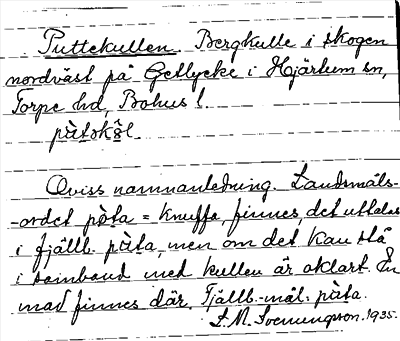 Puttekullen. Bergkulle i skogen
nordväst på Getlycke i Hjärtum sn,
Torpe hd, Bohus l.
pàtskⱥl.
Oviss namnanledning. Landsmåls-
-ordet pøta = knuffa, finnes, det uttalas
i fjällb. pàta, men om det kan stå
i samband med kullen är oklart. En
mad finnes där. Fjällb.-mål: pàta.
S. M. Svenungson. 1935.